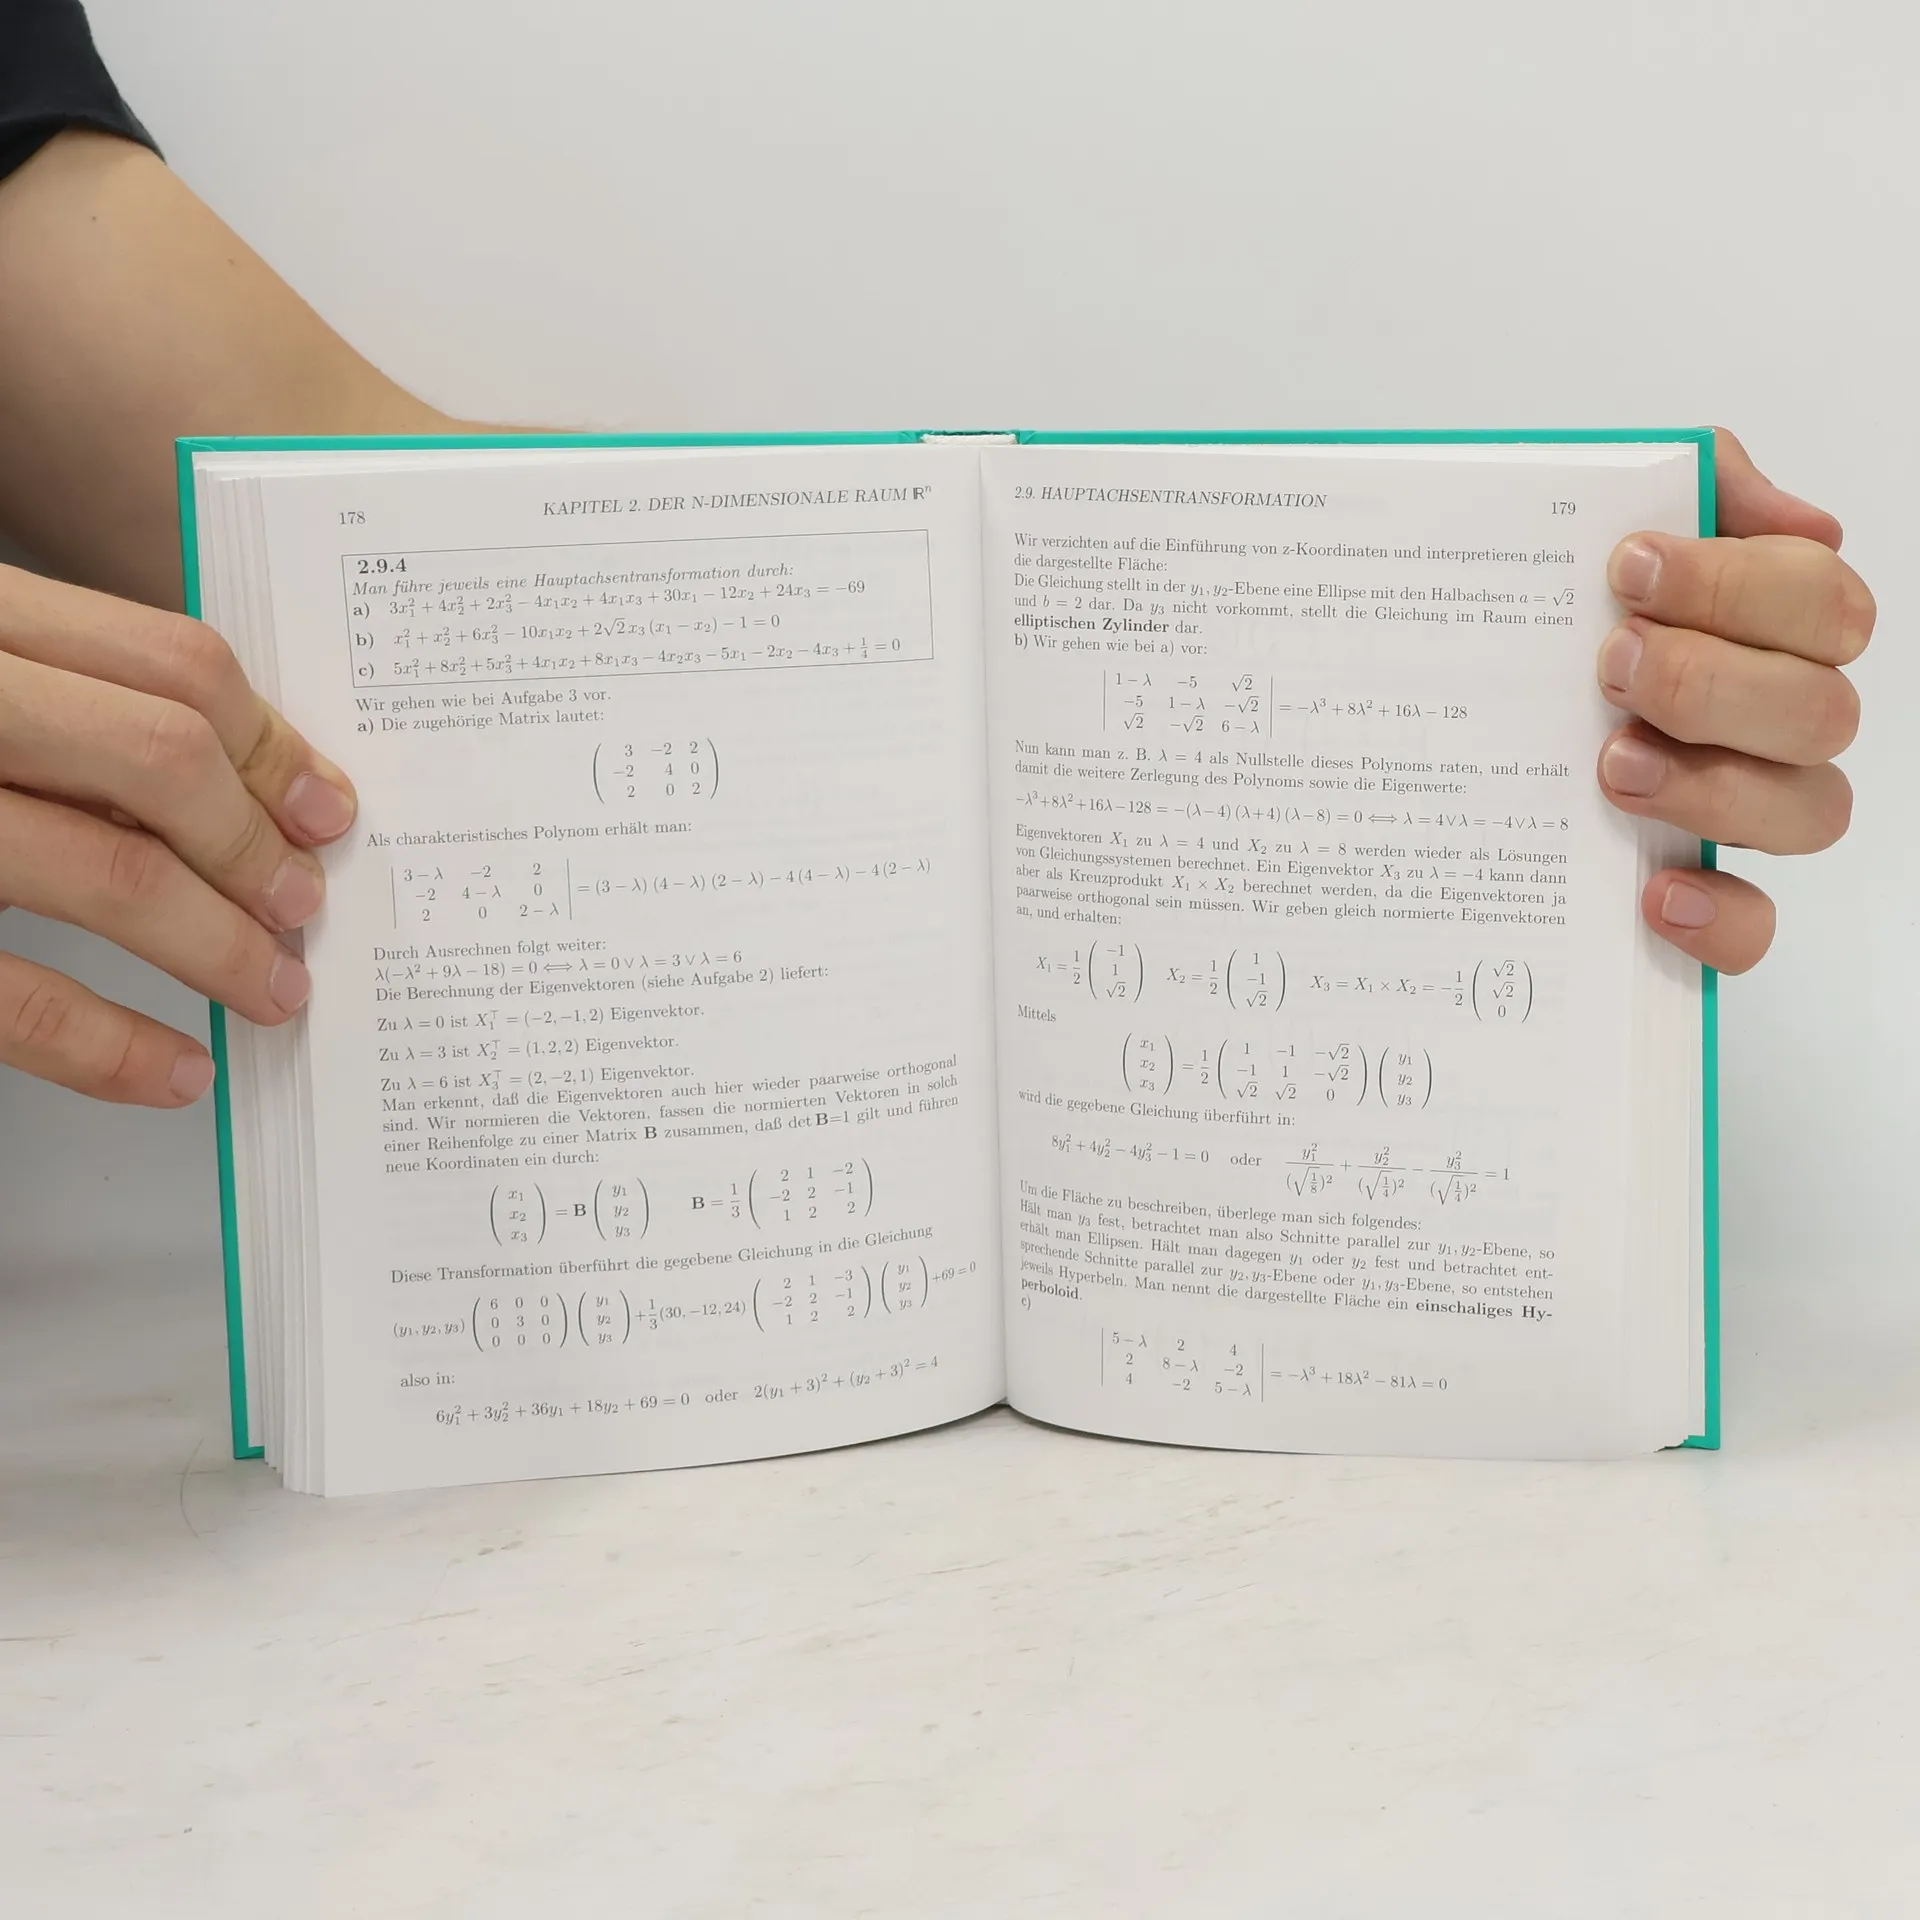 178
KAPITEL 2. DER N-DIMENSIONALE RAUM ℝⁿ
2.9.4
Man führe jeweils eine Hauptachsentransformation durch:
a) 3x₁² + 4x₂² + 2x₃² − 4x₁x₂ + 4x₁x₃ + 30x₁ − 12x₂ + 24x₃ = −69
b) x₁² + x₂² + 6x₃² − 10x₁x₂ + 2√2 x₃ (x₁ − x₂) − 1 = 0
c) 5x₁² + 8x₂² + 5x₃² + 4x₁x₂ + 8x₁x₃ − 4x₂x₃ − 5x₁ − 2x₂ − 4x₃ + 1/4 = 0
Wir gehen wie bei Aufgabe 3 vor.
a) Die zugehörige Matrix lautet:
3 −2 2
−2 4 0
2 0 2
Als charakteristisches Polynom erhält man:
| 3 − λ −2 2 |
| −2 4 − λ 0 | = (3 − λ) (4 − λ) (2 − λ) − 4 (4 − λ) − 4 (2 − λ)
| 2 0 2 − λ |
Durch Ausrechnen folgt weiter:
λ(−λ² + 9λ − 18) = 0 ⟺ λ = 0 ∨ λ = 3 ∨ λ = 6
Die Berechnung der Eigenvektoren (siehe Aufgabe 2) liefert:
Zu λ = 0 ist X₁ᵀ = (−2, −1, 2) Eigenvektor.
Zu λ = 3 ist X₂ᵀ = (1, 2, 2) Eigenvektor.
Zu λ = 6 ist X₃ᵀ = (2, −2, 1) Eigenvektor.
Man erkennt, daß die Eigenvektoren auch hier wieder paarweise orthogonal
sind. Wir normieren die Vektoren, fassen die normierten Vektoren in solch
einer Reihenfolge zu einer Matrix B zusammen, daß det B=1 gilt und führen
neue Koordinaten ein durch:
( x₁ ) ( y₁ ) ( 2 1 −2 )
( x₂ ) = B ( y₂ ) B = 1/3 ( −2 2 −1 )
( x₃ ) ( y₃ ) ( 1 2 2 )
Diese Transformation überführt die gegebene Gleichung in die Gleichung
( 6 0 0 ) ( y₁ ) ( 2 1 −3 ) ( y₁ )
(y₁, y₂, y₃) ( 0 3 0 ) ( y₂ ) + 1/3 (30, −12, 24) ( −2 2 −1 ) ( y₂ ) + 69 = 0
( 0 0 0 ) ( y₃ ) ( 1 2 2 ) ( y₃ )
also in:
6y₁² + 3y₂² + 36y₁ + 18y₂ + 69 = 0 oder 2(y₁ + 3)² + (y₂ + 3)² = 4
2.9. HAUPTACHSENTRANSFORMATION
179
Wir verzichten auf die Einführung von z-Koordinaten und interpretieren gleich
die dargestellte Fläche:
Die Gleichung stellt in der y₁, y₂-Ebene eine Ellipse mit den Halbachsen a = √2
und b = 2 dar. Da y₃ nicht vorkommt, stellt die Gleichung im Raum einen
elliptischen Zylinder dar.
b) Wir gehen wie bei a) vor:
| 1 − λ −5 √2 |
| −5 1 − λ −√2 | = −λ³ + 8λ² + 16λ − 128
| √2 −√2 6 − λ |
Nun kann man z. B. λ = 4 als Nullstelle dieses Polynoms raten, und erhält
damit die weitere Zerlegung des Polynoms sowie die Eigenwerte:
−λ³+8λ²+16λ−128 = −(λ−4) (λ+4) (λ−8) = 0 ⟺ λ = 4 ∨ λ = −4 ∨ λ = 8
Eigenvektoren X₁ zu λ = 4 und X₂ zu λ = 8 werden wieder als Lösungen
von Gleichungssystemen berechnet. Ein Eigenvektor X₃ zu λ = −4 kann dann
aber als Kreuzprodukt X₁ × X₂ berechnet werden, da die Eigenvektoren ja
paarweise orthogonal sein müssen. Wir geben gleich normierte Eigenvektoren
an, und erhalten:
( −1 ) ( 1 ) ( √2 )
X₁ = 1/2 ( 1 ) X₂ = 1/2 ( −1 ) X₃ = X₁ × X₂ = −1/2 ( √2 )
( √2 ) ( √2 ) ( 0 )
Mittels
( x₁ ) ( 1 −1 −√2 ) ( y₁ )
( x₂ ) = 1/2 ( −1 1 −√2 ) ( y₂ )
( x₃ ) ( √2 √2 0 ) ( y₃ )
wird die gegebene Gleichung überführt in:
8y₁² + 4y₂² − 4y₃² − 1 = 0 oder y₁²/(√(1/8))² + y₂²/(√(1/4))² − y₃²/(√(1/4))² = 1
Um die Fläche zu beschreiben, überlege man sich folgendes:
Hält man y₃ fest, betrachtet man also Schnitte parallel zur y₁, y₂-Ebene, so
erhält man Ellipsen. Hält man dagegen y₁ oder y₂ fest und betrachtet ent-
sprechende Schnitte parallel zur y₂, y₃-Ebene oder y₁, y₃-Ebene, so entstehen
jeweils Hyperbeln. Man nennt die dargestellte Fläche ein einschaliges Hy-
perboloid.
c)
| 5 − λ 2 4 |
| 2 8 − λ −2 | = −λ³ + 18λ² − 81λ = 0
| 4 −2 5 − λ |